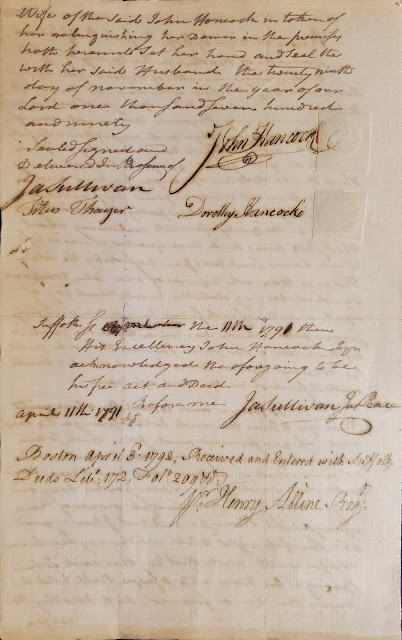 Wife of the said John Hancock in token of
her relinquishing her Dower in the premises
hath hereunto Set her hand and seal the
with her said Husband the twenty ninth
day of november in the year of our
Lord one thousand seven hundred
and ninety
Sealed Signed and
Delivered In Presence of
John Hancock
Ja Sullivan
Titus Thayer
Dorothy Hancock
Suffolk Ss the 11th 1791 then
His Excellency John Hancock Esqr
acknowledged the foregoing to be
his free act and Deed
Before me
Ja Sullivan Jus Peace
april 11th 1791
Boston April 3d. 1792, Received and Entered with Suffolk
Deeds Lib. 172, Fol. 209
Pr. Henry Alline Regr.